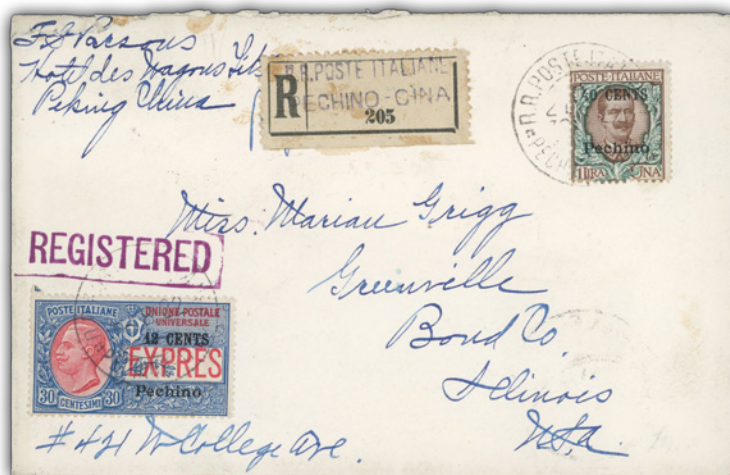 F S Parsons
Hotel des Wagons Lits
Peking China
R.R. POSTE ITALIANE
R PECHINO-CINA
205
R.R. POSTE ITA
PECH
POSTE ITALIANE
40 CENTS
Pechino
1 LIRA UNA
Miss. Marian Grigg
Greenville
Bond Co.
Illinois
USA.
REGISTERED
POSTE ITALIANE
UNIONE POSTALE
UNIVERSALE
12 CENTS
EXPRES
Pechino
30 CENTESIMI 30
#421 W College Ave.